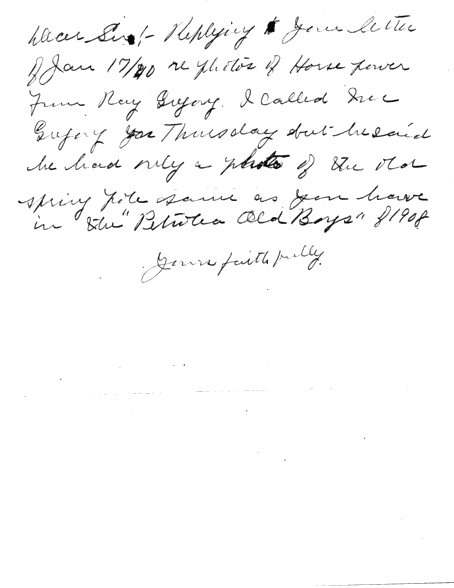 Dear Sir!- Replying to your letter
of Jan 17/40 re photos of Horse power
From Ray Gregory. I called Mr
Gregory on Thursday but he said
he had only a photo of the old
spring pole same as you have
in the "Petrolea Old Boys" of 1908
Yours faithfully.